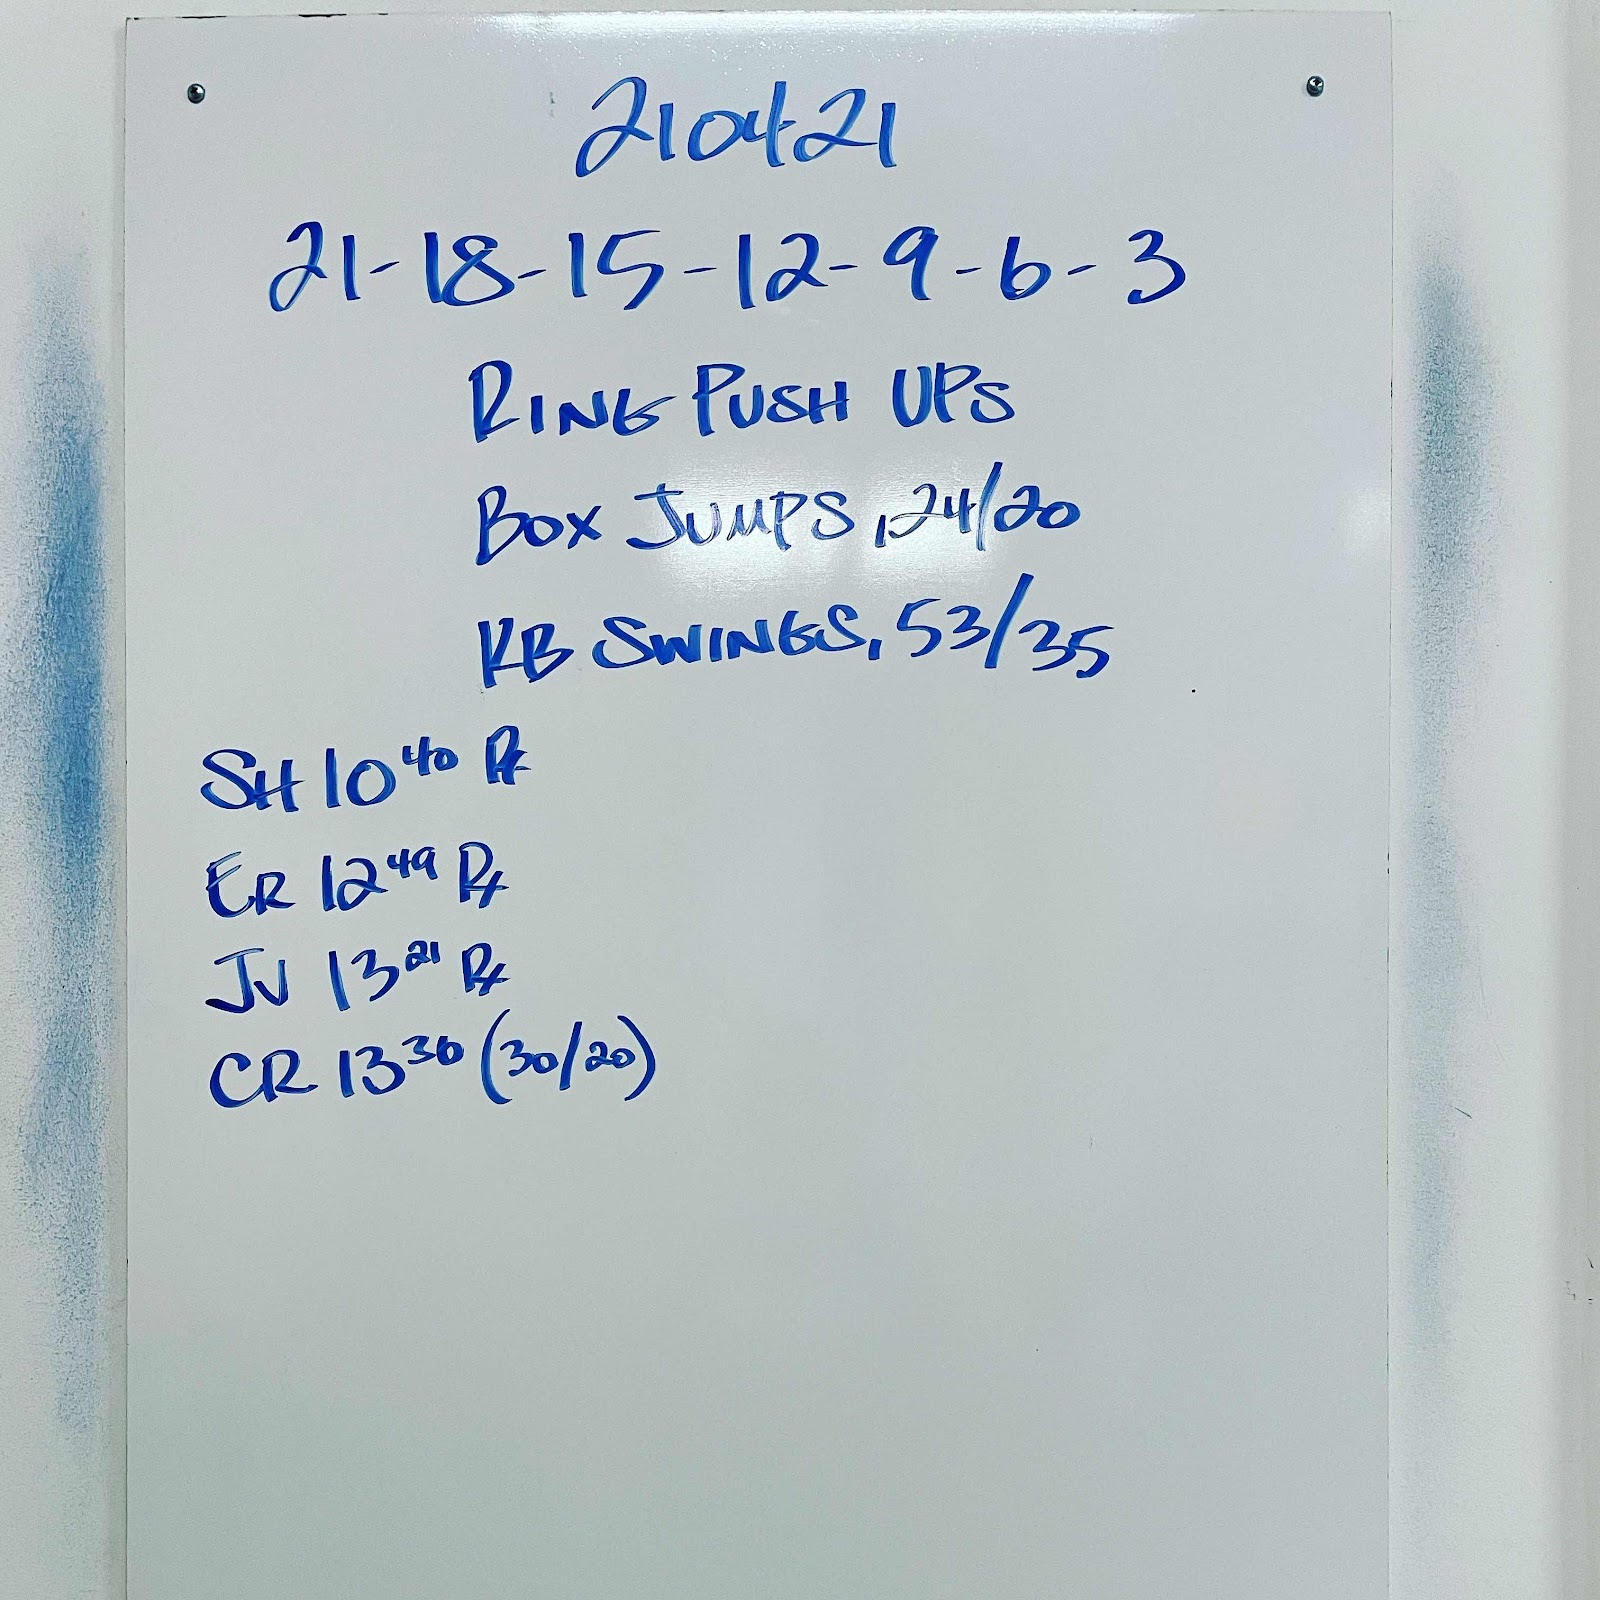 210421
21-18-15-12-9-6-3
RING PUSH UPS
BOX JUMPS, 24/20
KB SWINGS, 53/35
SH 10 40 Rx
ER 12 49 Rx
JV 13 21 Rx
CR 13 36 (30/20)